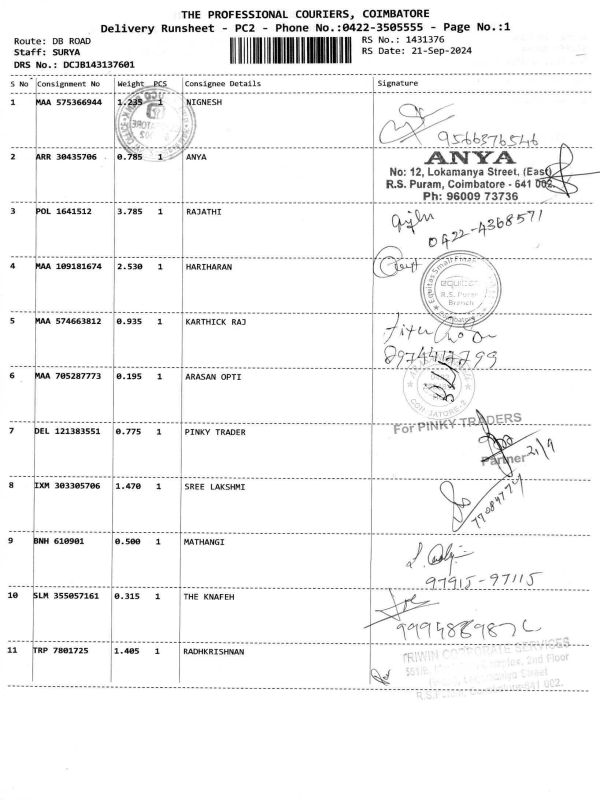 THE PROFESSIONAL COURIERS, COIMBATORE
Delivery Runsheet - PC2 - Phone No.:0422-3505555 - Page No.:1
Route: DB ROAD
RS No.: 1431376
Staff: SURYA
RS Date: 21-Sep-2024
DRS No.: DCJB143137601
S No Consignment No Weight PCS Consignee Details Signature
1 MAA 575366944 1.235 1 NIGNESH
9566376546
2 ARR 30435706 0.785 1 ANYA
ANYA
No: 12, Lokamanya Street, (East)
R.S. Puram, Coimbatore - 641 002.
Ph: 96009 73736
3 POL 1641512 3.785 1 RAJATHI
0422-4368571
4 MAA 109181674 2.530 1 HARIHARAN
Equitas Small Finance
equitas
R.S. Puram
Branch
Coimbatore
5 MAA 574663812 0.935 1 KARTHICK RAJ
8974412799
6 MAA 705287773 0.195 1 ARASAN OPTI
7 DEL 121383551 0.775 1 PINKY TRADER
For PINKY TRADERS
Partner 21/9
8 IXM 303305706 1.470 1 SREE LAKSHMI
9 BNH 610901 0.500 1 MATHANGI
97915-97115
10 SLM 355057161 0.315 1 THE KNAFEH
11 TRP 7801725 1.405 1 RADHKRISHNAN
TRIWIN CORPORATE SERVICES
Complex, 2nd Floor
Lokamaniya Street
R.S.Puram, Coimbatore-641 002.